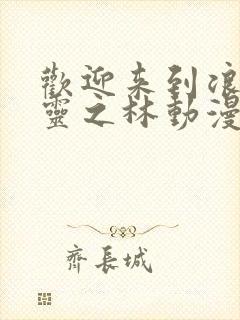 歡迎来到浪
靈之林動漫
齊長城